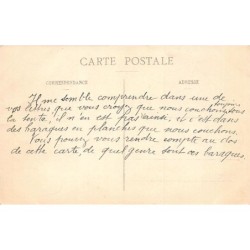 CARTE POSTALE
CORRESPONDANCE
ADRESSE
Il me semble comprendre dans une de
vos lettres que vous croyez que nous couchons toujours sous
la tente, il n'en est pas ainsi, et c'est dans
des baraques en planches que nous couchons.
Vous pourrez vous rendre compte au dos
de cette carte, de quel genre sont ces baraques.